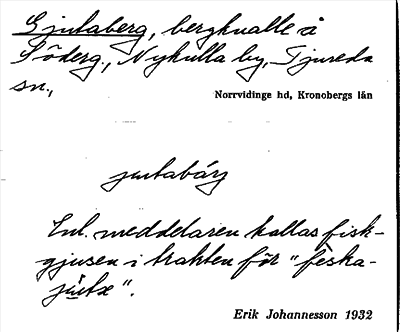 Gjutaberg, bergknalle å
Söderg., Nykulla by, Tjureda
sn.,
Norrvidinge hd, Kronobergs län
jutabárj
Enl. meddelaren kallas fisk-
gjusen i trakten för "feska-
jutæ".
Erik Johannesson 1932